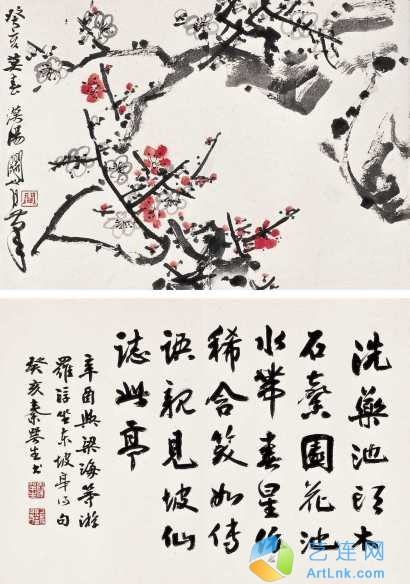 癸亥莫春 漠陽關山月筆
洗藥池頭木
石縈園花池
水帶春星仿
稀合笑如傳
語親見坡仙
誌此亭
辛酉與梁海等游
羅浮坐東坡亭得句
癸亥秦咢生書
艺连网
ArtLnk.com